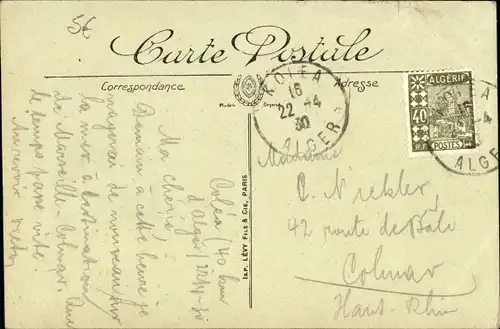 5€
Carte Postale
Correspondance
Adresse
KOLEA
16
22 -4
30
ALGER
ALGÉRIE
40
POSTES
ALGE
Coléa (40 km
d'Alger) 22.IV.30
Ma chérie!
Demain à cette heure je
nagerai de nouveau sur
la mer à destination
de Marseille Colmar. Que
le temps passe vite!
Au revoir
IMP. LÉVY FILS & CIE, PARIS
Madame
C. Niebler
42 route de Bâle
Colmar
Haut-Rhin